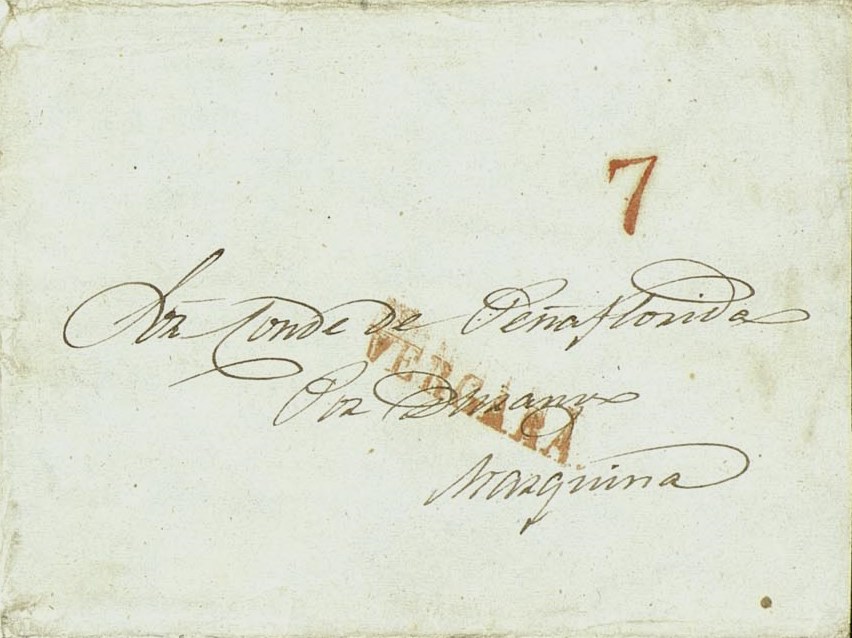 7
Sor Conde de Peñaflorida
VERGARA
Por Durango
Marquina